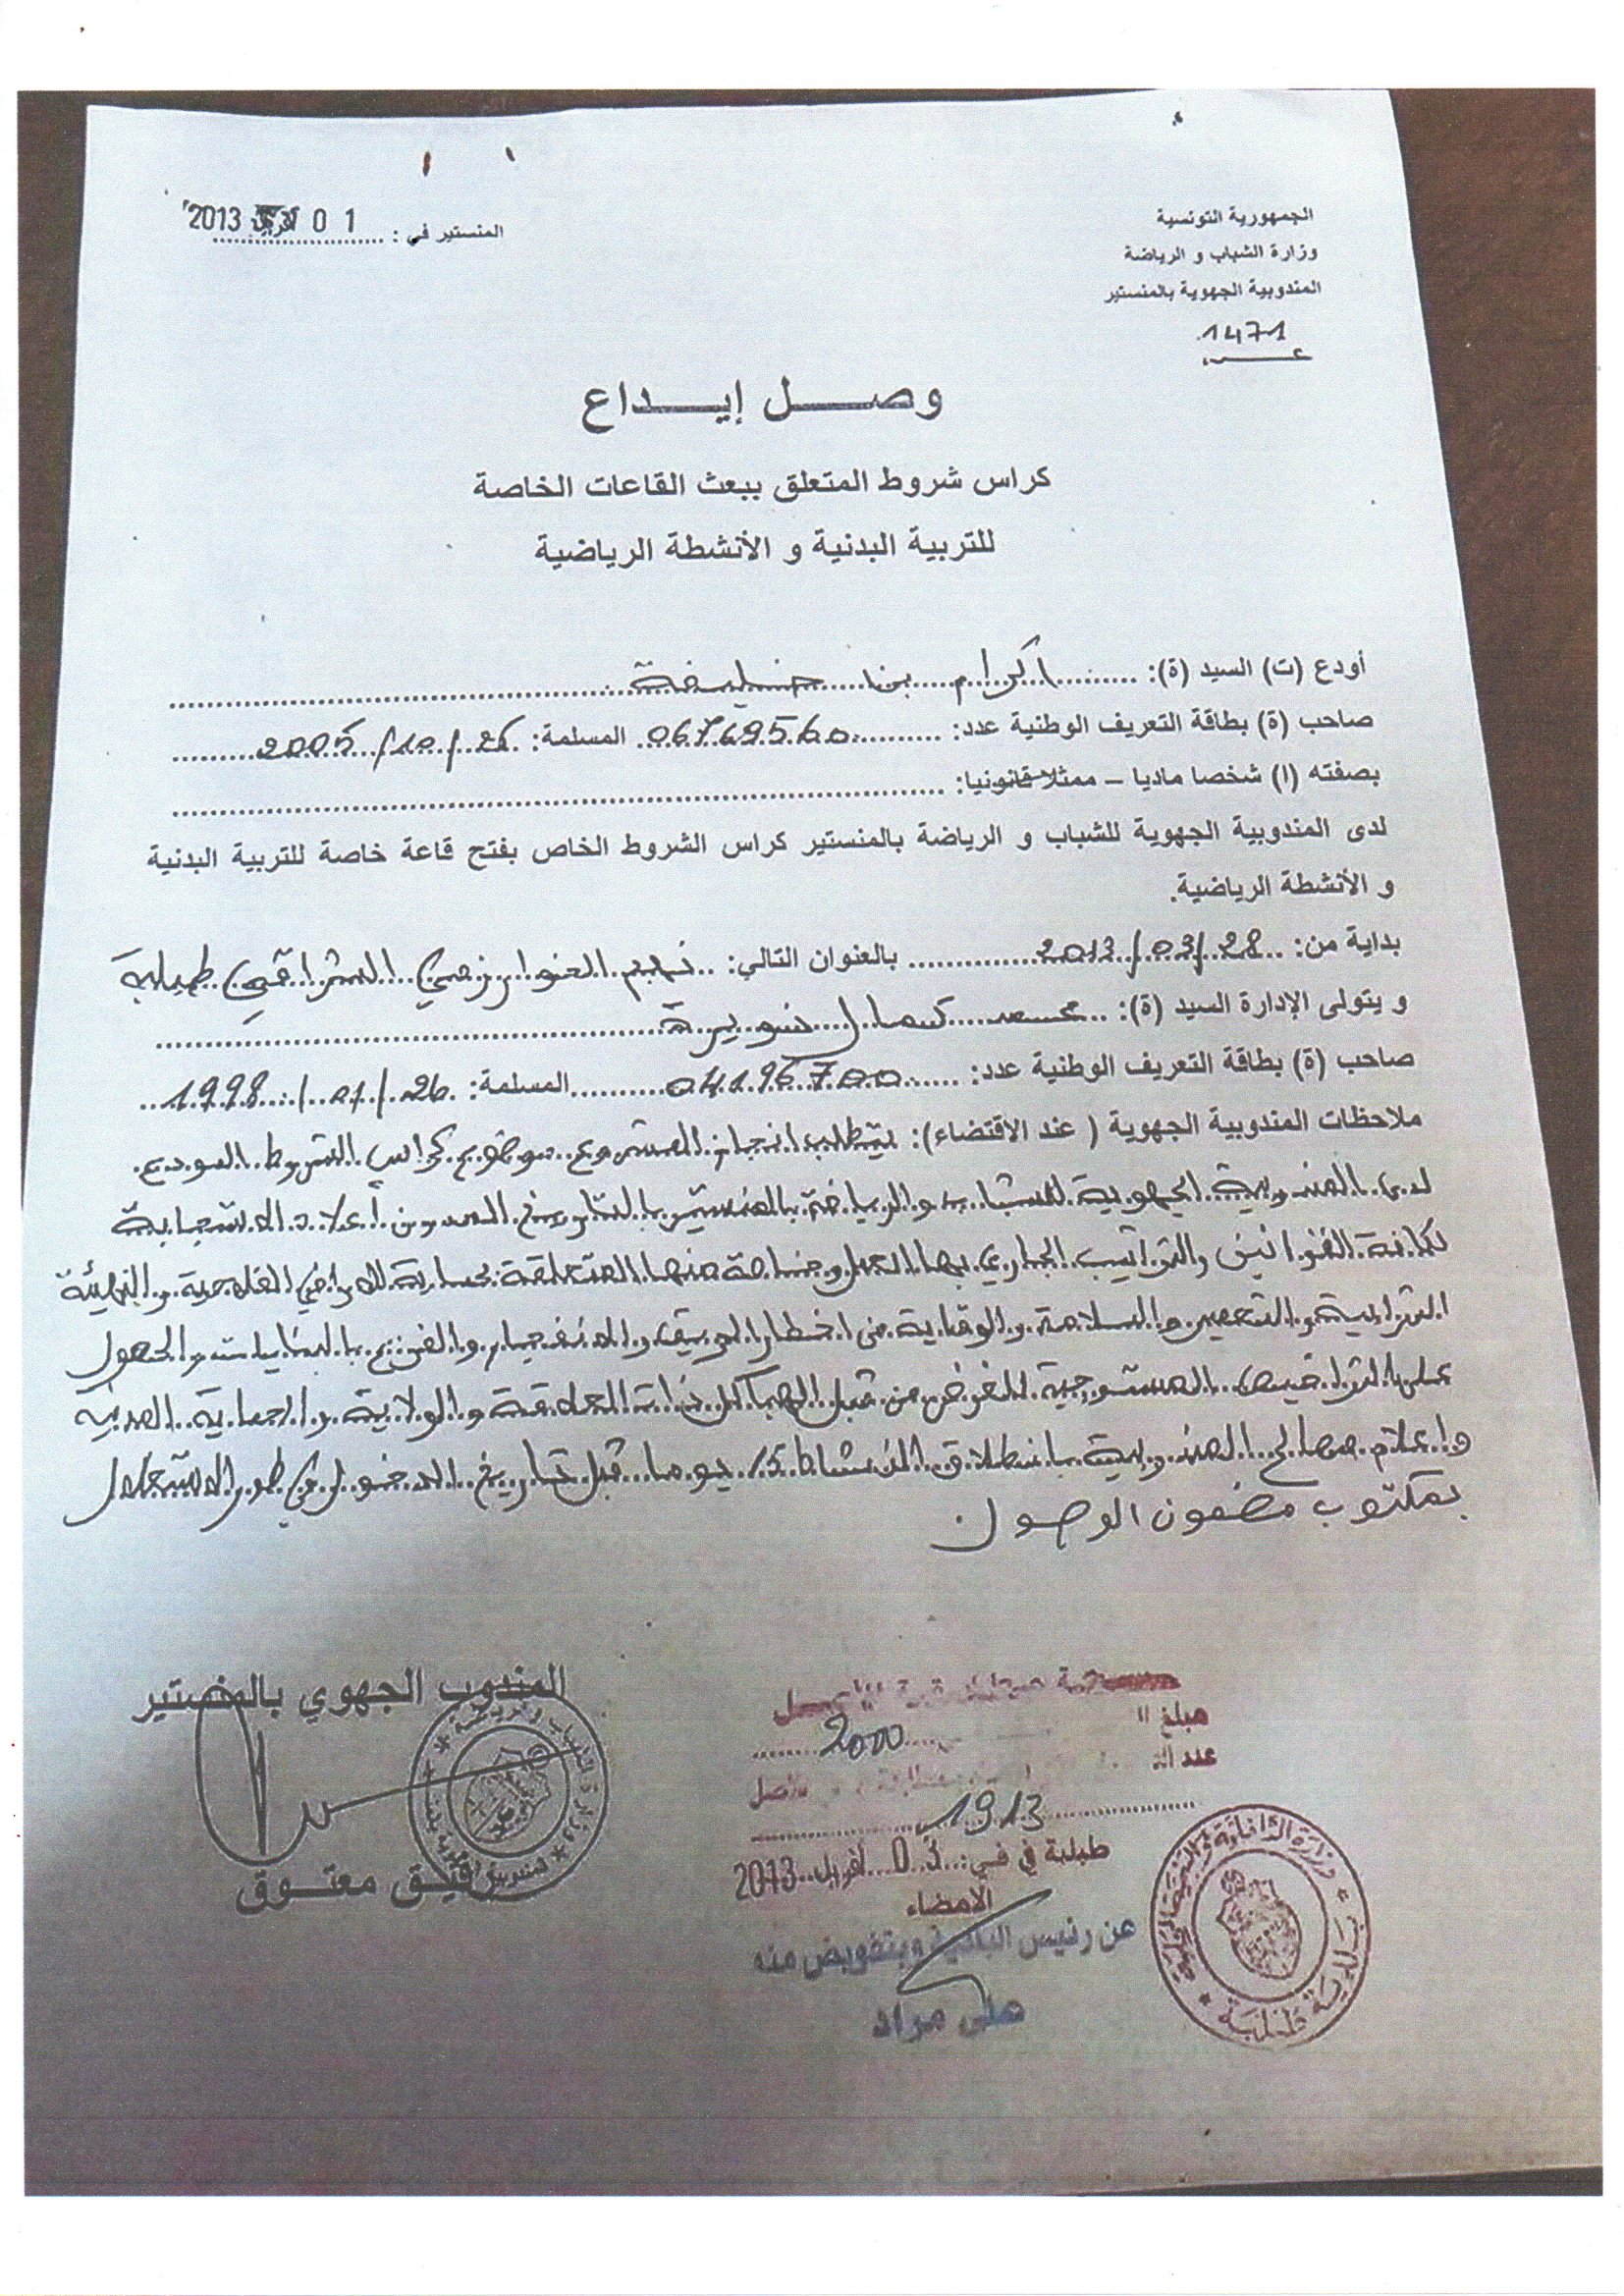 الجمهورية التونسية
وزارة الشباب و الرياضة
المندوبية الجهوية بالمنستير
1471
عـــدد
المنستير في : 01 أفريل 2013
وصـــل إيـــداع
كراس شروط المتعلق ببعث القاعات الخاصة
للتربية البدنية و الأنشطة الرياضية
أودع (ت) السيد (ة): اكرام بن خليفة
صاحب (ة) بطاقة التعريف الوطنية عدد: 06769560 المسلمة: 26/10/2005
بصفته (ا) شخصا ماديا – ممثلا قانونيا:
لدى المندوبية الجهوية للشباب و الرياضة بالمنستير كراس الشروط الخاص بفتح قاعة خاصة للتربية البدنية
و الأنشطة الرياضية.
بداية من: 28/03/2013 بالعنوان التالي: نهج الخوارزمي الشراقي طبلبة
و يتولى الإدارة السيد (ة): محمد كمال نويرة
صاحب (ة) بطاقة التعريف الوطنية عدد: 04196700 المسلمة: 26/01/1998
ملاحظات المندوبية الجهوية ( عند الاقتضاء): يتطلب انجاز المشروع موضوع كراس الشروط المودع
لدى المندوبية الجهوية للشباب والرياضة بالمنستير بالتاريخ المدون أعلاه الاستجابة
لكافة القوانين والتراتيب الجاري بها العمل وخاصة منها المتعلقة بحماية الاراضي الفلاحية والتهيئة
الترابية والتعمير والسلامة والوقاية من اخطار الحريق والانفجار والفزع بالبنايات والحصول
على التراخيص المستوجبة للغرض من قبل الهياكل ذات العلاقة والولاية والحماية المدنية
واعلام مصالح المندوبية بانطلاق النشاط 15 يوما قبل تاريخ الدخول في طور الاستغلال
بمكتوب مضمون الوصول.
المندوب الجهوي بالمنستير
رفيق معتوق
مبلغ
2000
عدد
1913
طبلبة في في: 03 أفريل 2013
الامضاء
عن رئيس البلدية وبتفويض منه
علي مراد
بلدية طبلبة